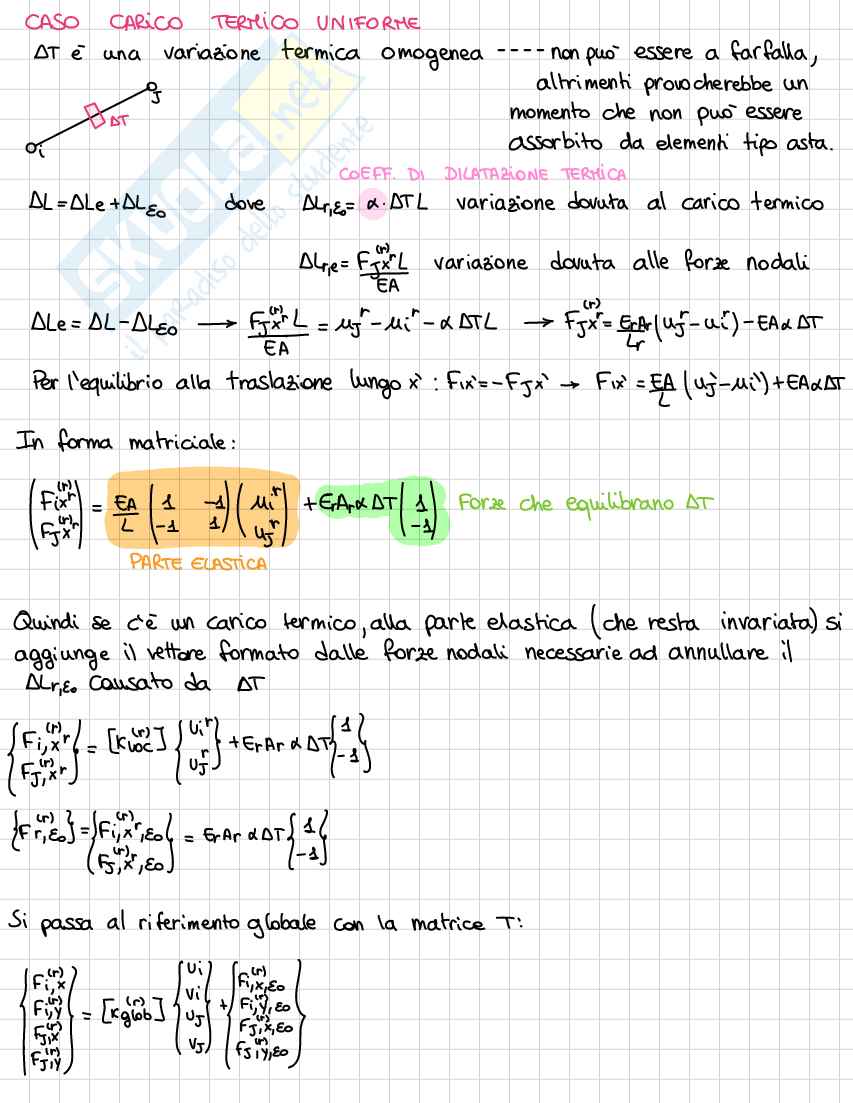 CASO CARICO TERMICO UNIFORME
ΔT è una variazione termica omogenea ---- non può essere a farfalla,
altrimenti provocherebbe un
momento che non può essere
assorbito da elementi tipo asta.
i J ΔT
COEFF. DI DILATAZIONE TERMICA
ΔL = ΔLe + ΔL_ε0 dove ΔL_r,ε0 = α·ΔT L variazione dovuta al carico termico
ΔL_r,e = F_Jx^r^(r) L / EA variazione dovuta alle forze nodali
ΔLe = ΔL - ΔL_ε0 → F_Jx^r^(r) L / EA = u_J^r - u_i^r - α ΔT L → F_Jx^r^(r) = ErAr/Lr (u_J^r - u_i^r) - EA α ΔT
Per l'equilibrio alla traslazione lungo x' : Fix' = -FJx' → Fix' = EA/L (uJ' - ui') + EAαΔT
In forma matriciale:
(F_ix^r^(r) ; F_Jx^r^(r)) = EA/L (1 -1 ; -1 1) (u_i^r ; u_J^r) + ErAr α ΔT (1 ; -1) Forze che equilibrano ΔT
PARTE ELASTICA
Quindi se c'è un carico termico, alla parte elastica (che resta invariata) si
aggiunge il vettore formato dalle forze nodali necessarie ad annullare il
ΔL_r,ε0 causato da ΔT
{F_i,x^r^(r) ; F_J,x^r^(r)} = [K_loc^(r)] {U_i^r ; U_J^r} + ErAr α ΔT {1 ; -1}
{F_r,ε0^(r)} = {F_i,x^r,ε0^(r) ; F_J,x^r,ε0^(r)} = ErAr α ΔT {1 ; -1}
Si passa al riferimento globale con la matrice T:
{F_i,x^(r) ; F_i,y^(r) ; F_J,x^(r) ; F_J,y^(r)} = [K_glob^(r)] {U_i ; V_i ; U_J ; V_J} + {F_i,x,ε0^(r) ; F_i,y,ε0^(r) ; F_J,x,ε0^(r) ; F_J,y,ε0^(r)}
SKUOLA.net
il paradiso dello studente